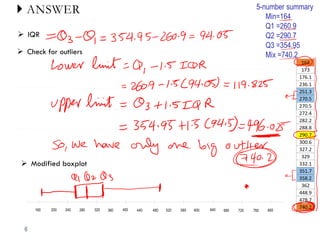 ANSWER
5-number summary
Min=164
Q1 =260.9
Q2 =290.7
Q3 =354.95
Mix =740.2
➢ IQR = Q3 - Q1 = 354.95 - 260.9 = 94.05
➢ Check for outliers
Lower limit = Q1 - 1.5 IQR
= 260.9 - 1.5 (94.05) = 119.825
upper limit = Q3 + 1.5 IQR
= 354.95 + 1.5 (94.5) = 496.025
So, we have only one big outlier
740.2
➢ Modified boxplot
Q1 Q2 Q3
160 200 240 280 320 360 400 440 480 520 560 600 640 680 720 760 800
164
173
176.1
236.1
251.3
270.5
270.5
272.4
282.2
288.8
290.7
300.6
327.2
329
332.1
351.7
358.2
362
448.9
478.2
740.2
6